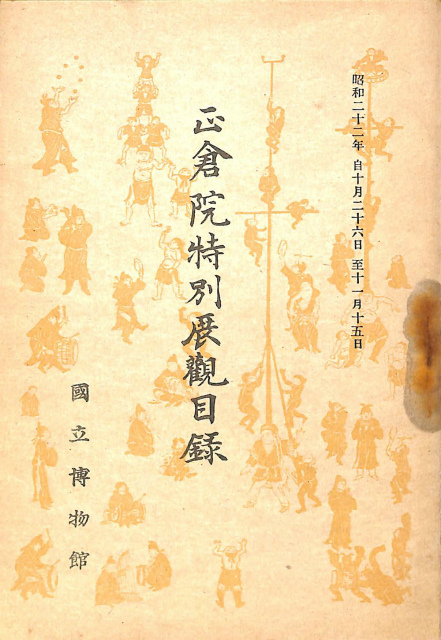 昭和二十二年 自十月二十六日 至十一月十五日
正倉院特別展觀目録
國立博物館